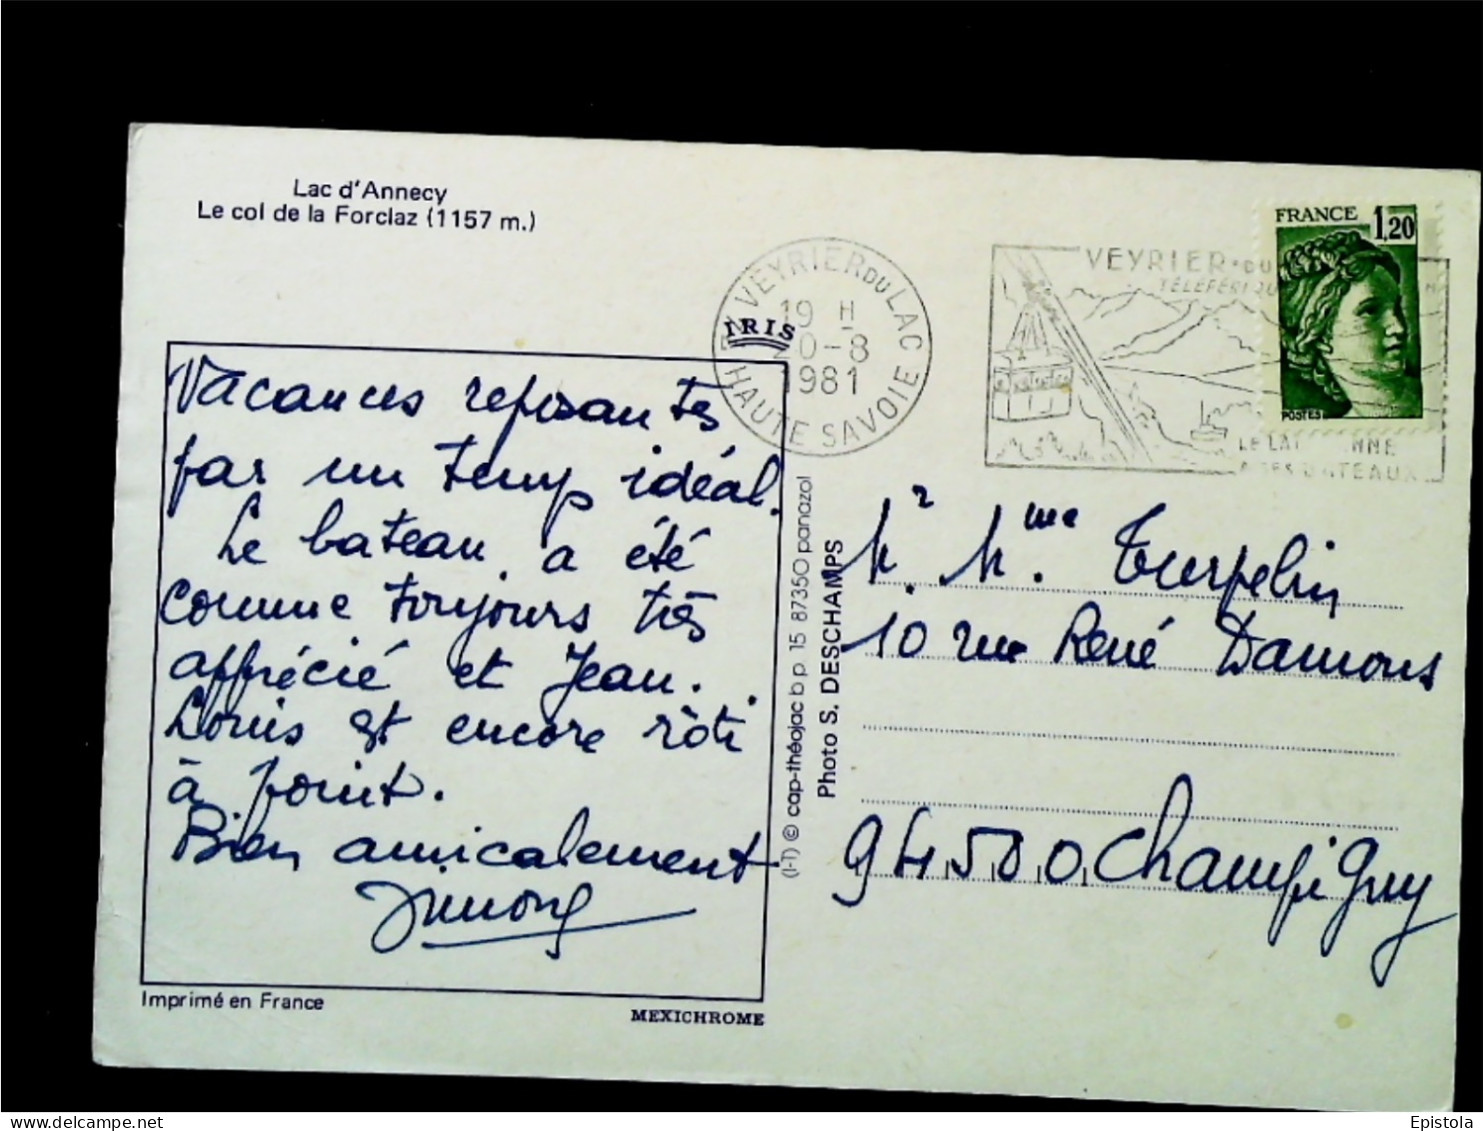 Lac d'Annecy
Le col de la Forclaz (1157 m.)
IRIS
Vacances reposantes
par un temps idéal.
Le bateau a été
comme toujours très
apprécié et Jean.
Louis est encore rôti
à point.
Bien amicalement
Imprimé en France
MEXICHROME
(I-1) © cap-théojac b.p. 15 87350 panazol
Photo S. DESCHAMPS
VEYRIER DU LAC
19 H
20-8
1981
HAUTE SAVOIE
VEYRIER-DU
FRANCE 1,20
POSTES
Mr. Mme. Turpelin
10 rue René Damous
94500 Champigny
Epistola